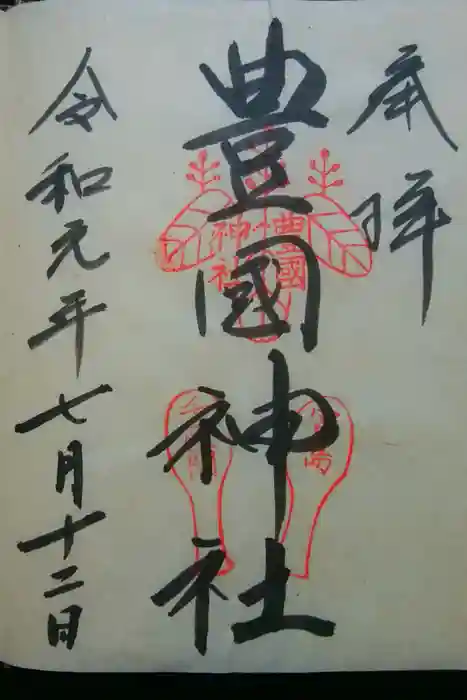 奉拝
豊國神社
豊國
神社
宮島
令和元年七月十二日